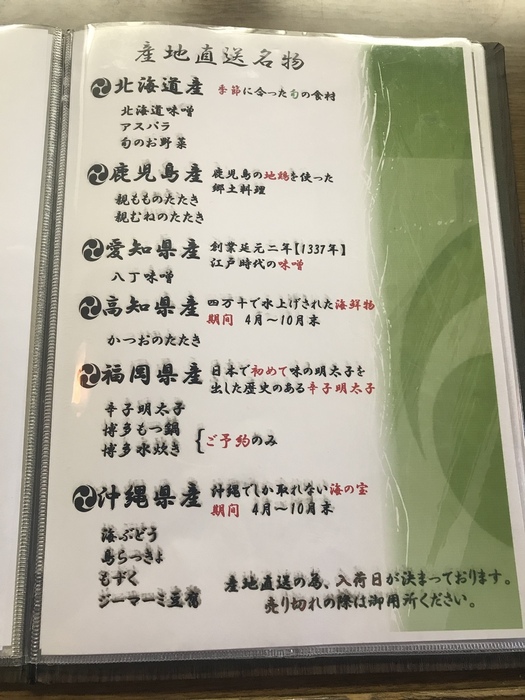 産地直送名物
北海道産 季節に合った旬の食材
北海道味噌
アスパラ
旬のお野菜
鹿児島産 鹿児島の地鶏を使った
郷土料理
親もものたたき
親むねのたたき
愛知県産 創業延元二年【1337年】
江戸時代の味噌
八丁味噌
高知県産 四万十で水上げされた海鮮物
期間 4月〜10月末
かつおのたたき
福岡県産 日本で初めて味の明太子を
出した歴史のある辛子明太子
辛子明太子
博多もつ鍋
博多水炊き
{ご予約のみ
沖縄県産 沖縄でしか取れない海の宝
期間 4月〜10月末
海ぶどう
島らっきょ
もずく
ジーマーミ豆腐
産地直送の為、入荷日が決まっております。
売り切れの際は御用所ください。